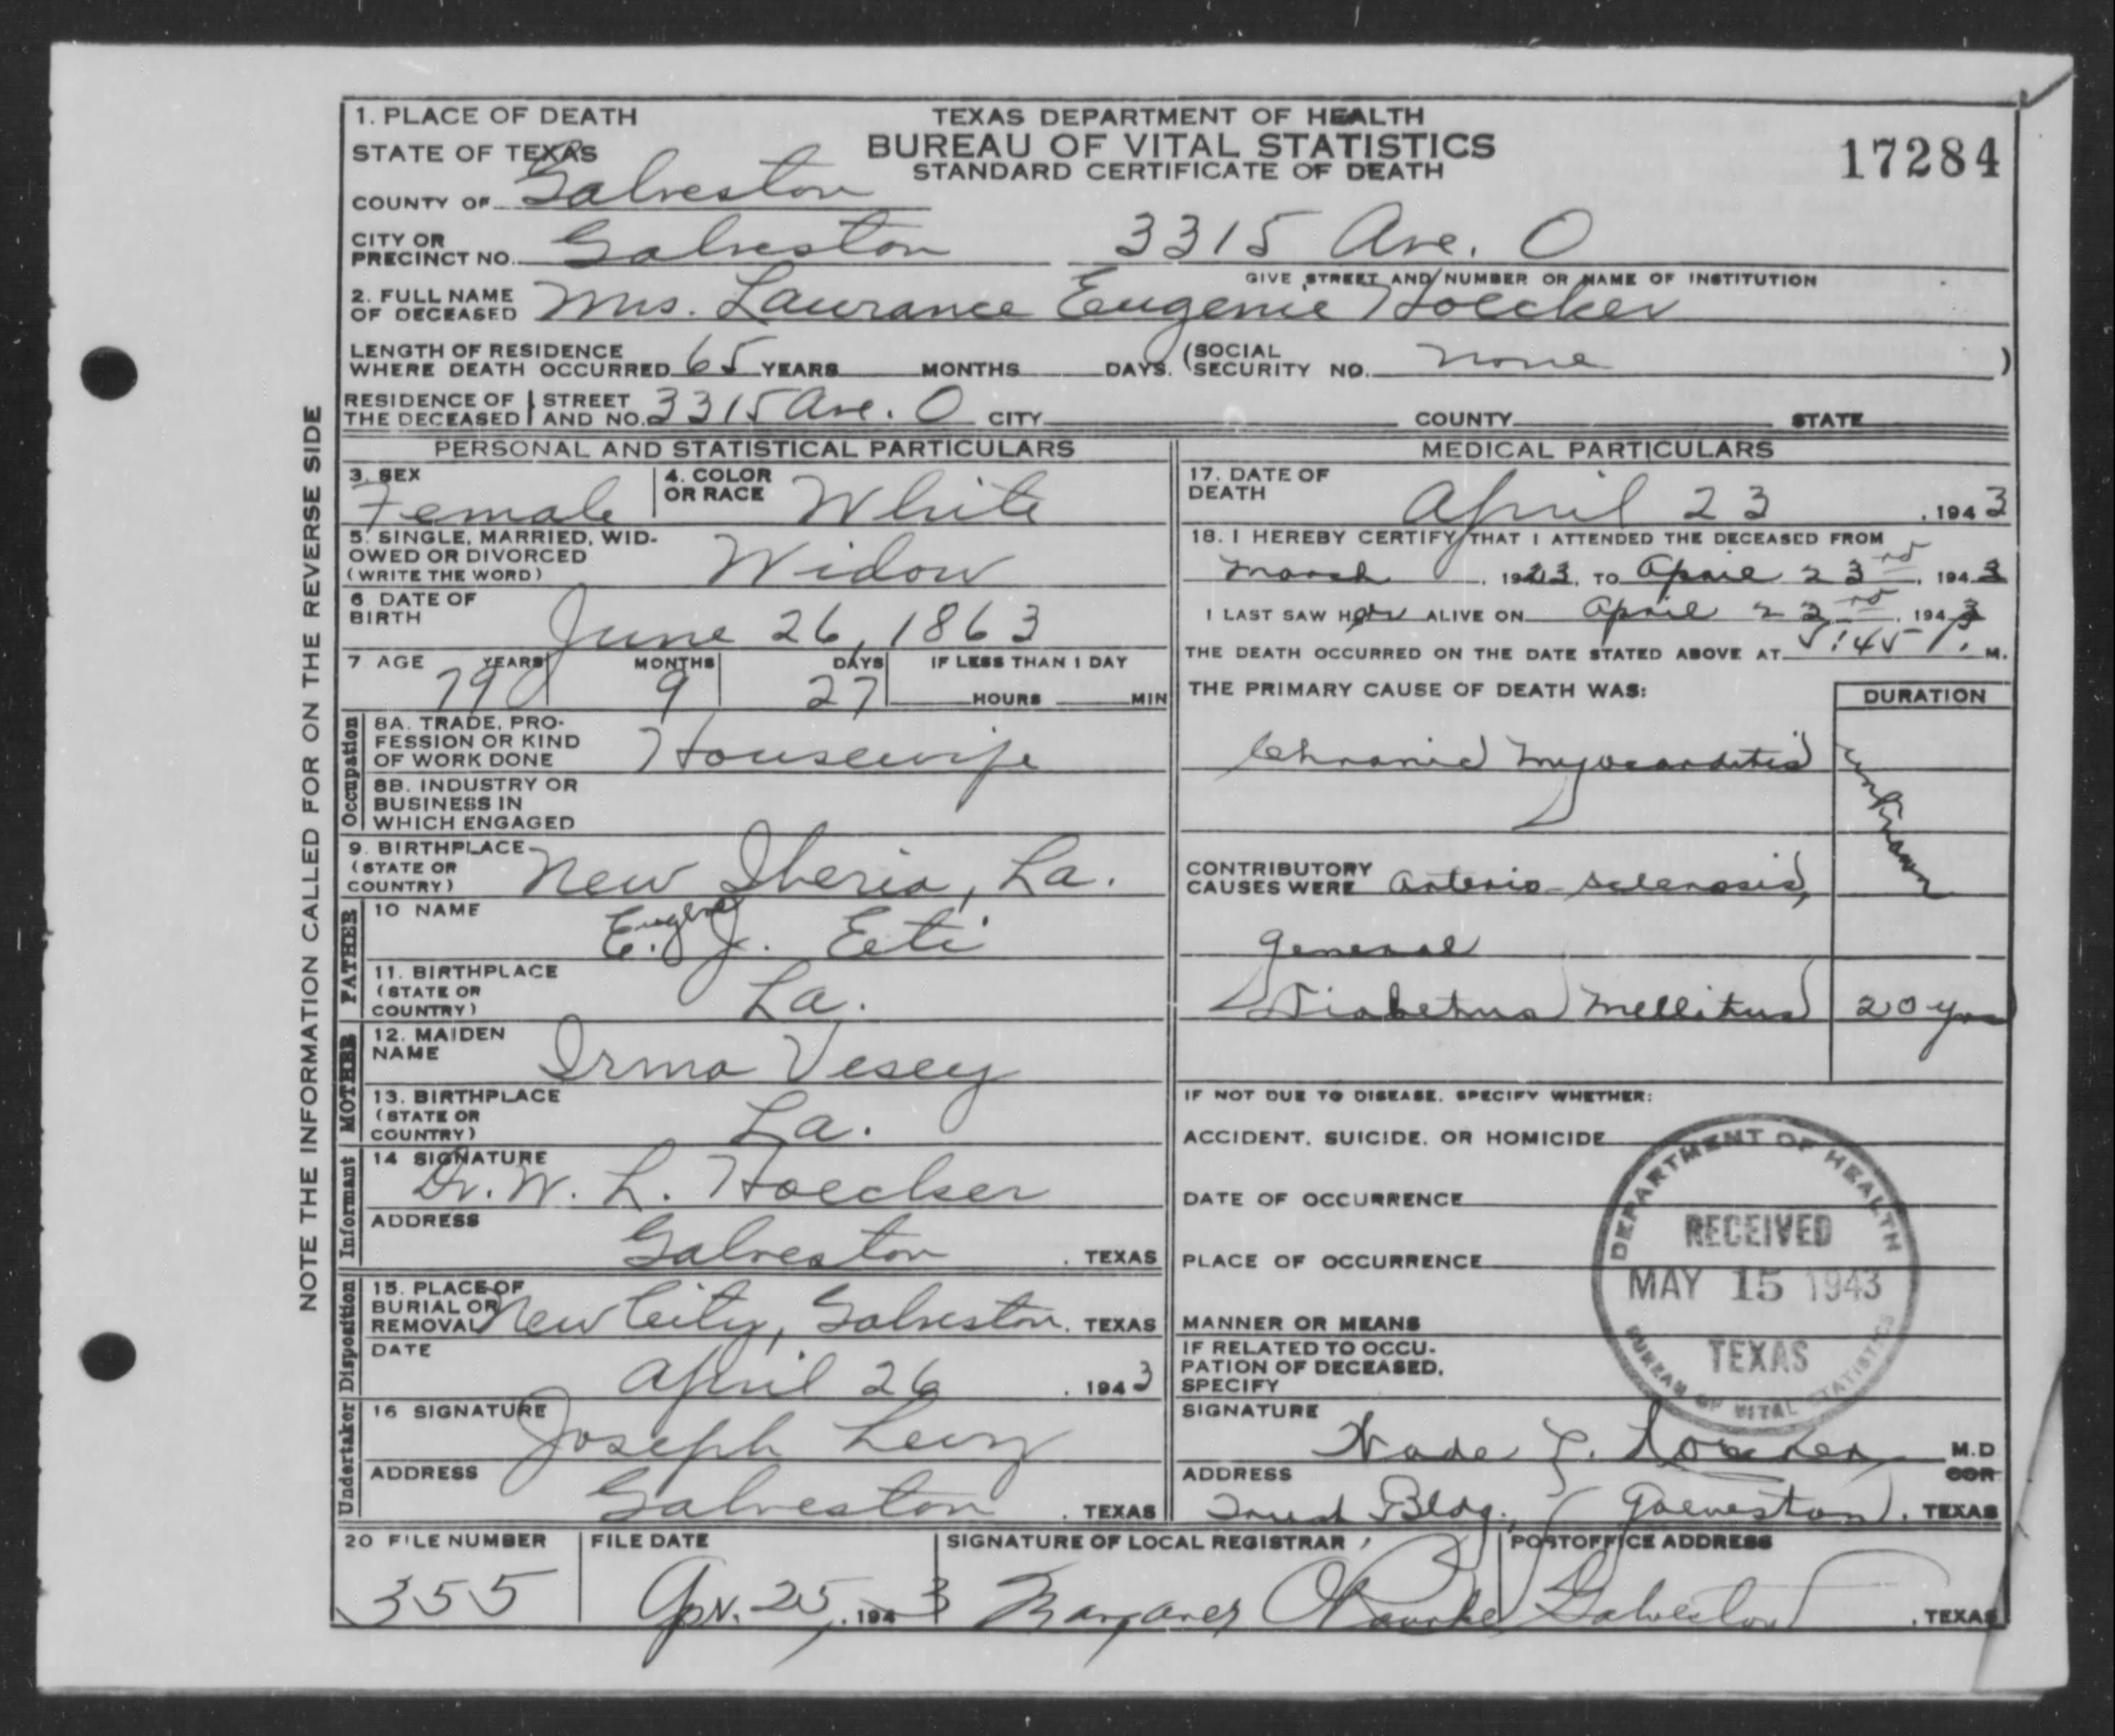 1. PLACE OF DEATH
TEXAS DEPARTMENT OF HEALTH
BUREAU OF VITAL STATISTICS
STANDARD CERTIFICATE OF DEATH
17284
STATE OF TEXAS
COUNTY OF Galveston
CITY OR PRECINCT NO. Galveston 3315 Ave. O
GIVE STREET AND NUMBER OR NAME OF INSTITUTION
2. FULL NAME OF DECEASED Mrs. Laurance Eugenie Hoecker
LENGTH OF RESIDENCE WHERE DEATH OCCURRED 65 YEARS MONTHS DAYS. (SOCIAL SECURITY NO. none )
RESIDENCE OF THE DECEASED STREET AND NO. 3315 Ave. O CITY COUNTY STATE
NOTE THE INFORMATION CALLED FOR ON THE REVERSE SIDE
PERSONAL AND STATISTICAL PARTICULARS
3. SEX Female 4. COLOR OR RACE White
5. SINGLE, MARRIED, WIDOWED OR DIVORCED (WRITE THE WORD) Widow
6. DATE OF BIRTH June 26, 1863
7 AGE YEARS 79 MONTHS 9 DAYS 27 IF LESS THAN 1 DAY HOURS MIN
Occupation
8A. TRADE, PROFESSION OR KIND OF WORK DONE Housewife
8B. INDUSTRY OR BUSINESS IN WHICH ENGAGED
9. BIRTHPLACE (STATE OR COUNTRY) New Iberia, La.
FATHER
10 NAME E. J. Eeti
11. BIRTHPLACE (STATE OR COUNTRY) La.
MOTHER
12. MAIDEN NAME Irma Vesey
13. BIRTHPLACE (STATE OR COUNTRY) La.
Informant
14 SIGNATURE Dr. W. L. Hoecker
ADDRESS Galveston, TEXAS
Disposition
15. PLACE OF BURIAL OR REMOVAL New City, Galveston, TEXAS
DATE April 26, 1943
Undertaker
16 SIGNATURE Joseph Levy
ADDRESS Galveston, TEXAS
MEDICAL PARTICULARS
17. DATE OF DEATH April 23, 1943
18. I HEREBY CERTIFY THAT I ATTENDED THE DECEASED FROM
March, 1923, TO April 23rd, 1943
I LAST SAW Her ALIVE ON April 23rd, 1943
THE DEATH OCCURRED ON THE DATE STATED ABOVE AT 5:45 P. M.
THE PRIMARY CAUSE OF DEATH WAS: DURATION
Chronic Myocarditis unknown
CONTRIBUTORY CAUSES WERE Arterio-sclerosis,
general
Diabetus Mellitus 20 yrs
IF NOT DUE TO DISEASE, SPECIFY WHETHER:
ACCIDENT, SUICIDE, OR HOMICIDE
DATE OF OCCURRENCE
PLACE OF OCCURRENCE
MANNER OR MEANS
IF RELATED TO OCCUPATION OF DECEASED, SPECIFY
DEPARTMENT OF HEALTH
RECEIVED
MAY 15 1943
TEXAS
BUREAU OF VITAL STATISTICS
SIGNATURE Wade L. Hoecker M.D COR
ADDRESS Trust Bldg. Galveston, TEXAS
20 FILE NUMBER 355
FILE DATE Apr. 25, 1943
SIGNATURE OF LOCAL REGISTRAR Margaret O'Rourke
POSTOFFICE ADDRESS Galveston, TEXAS